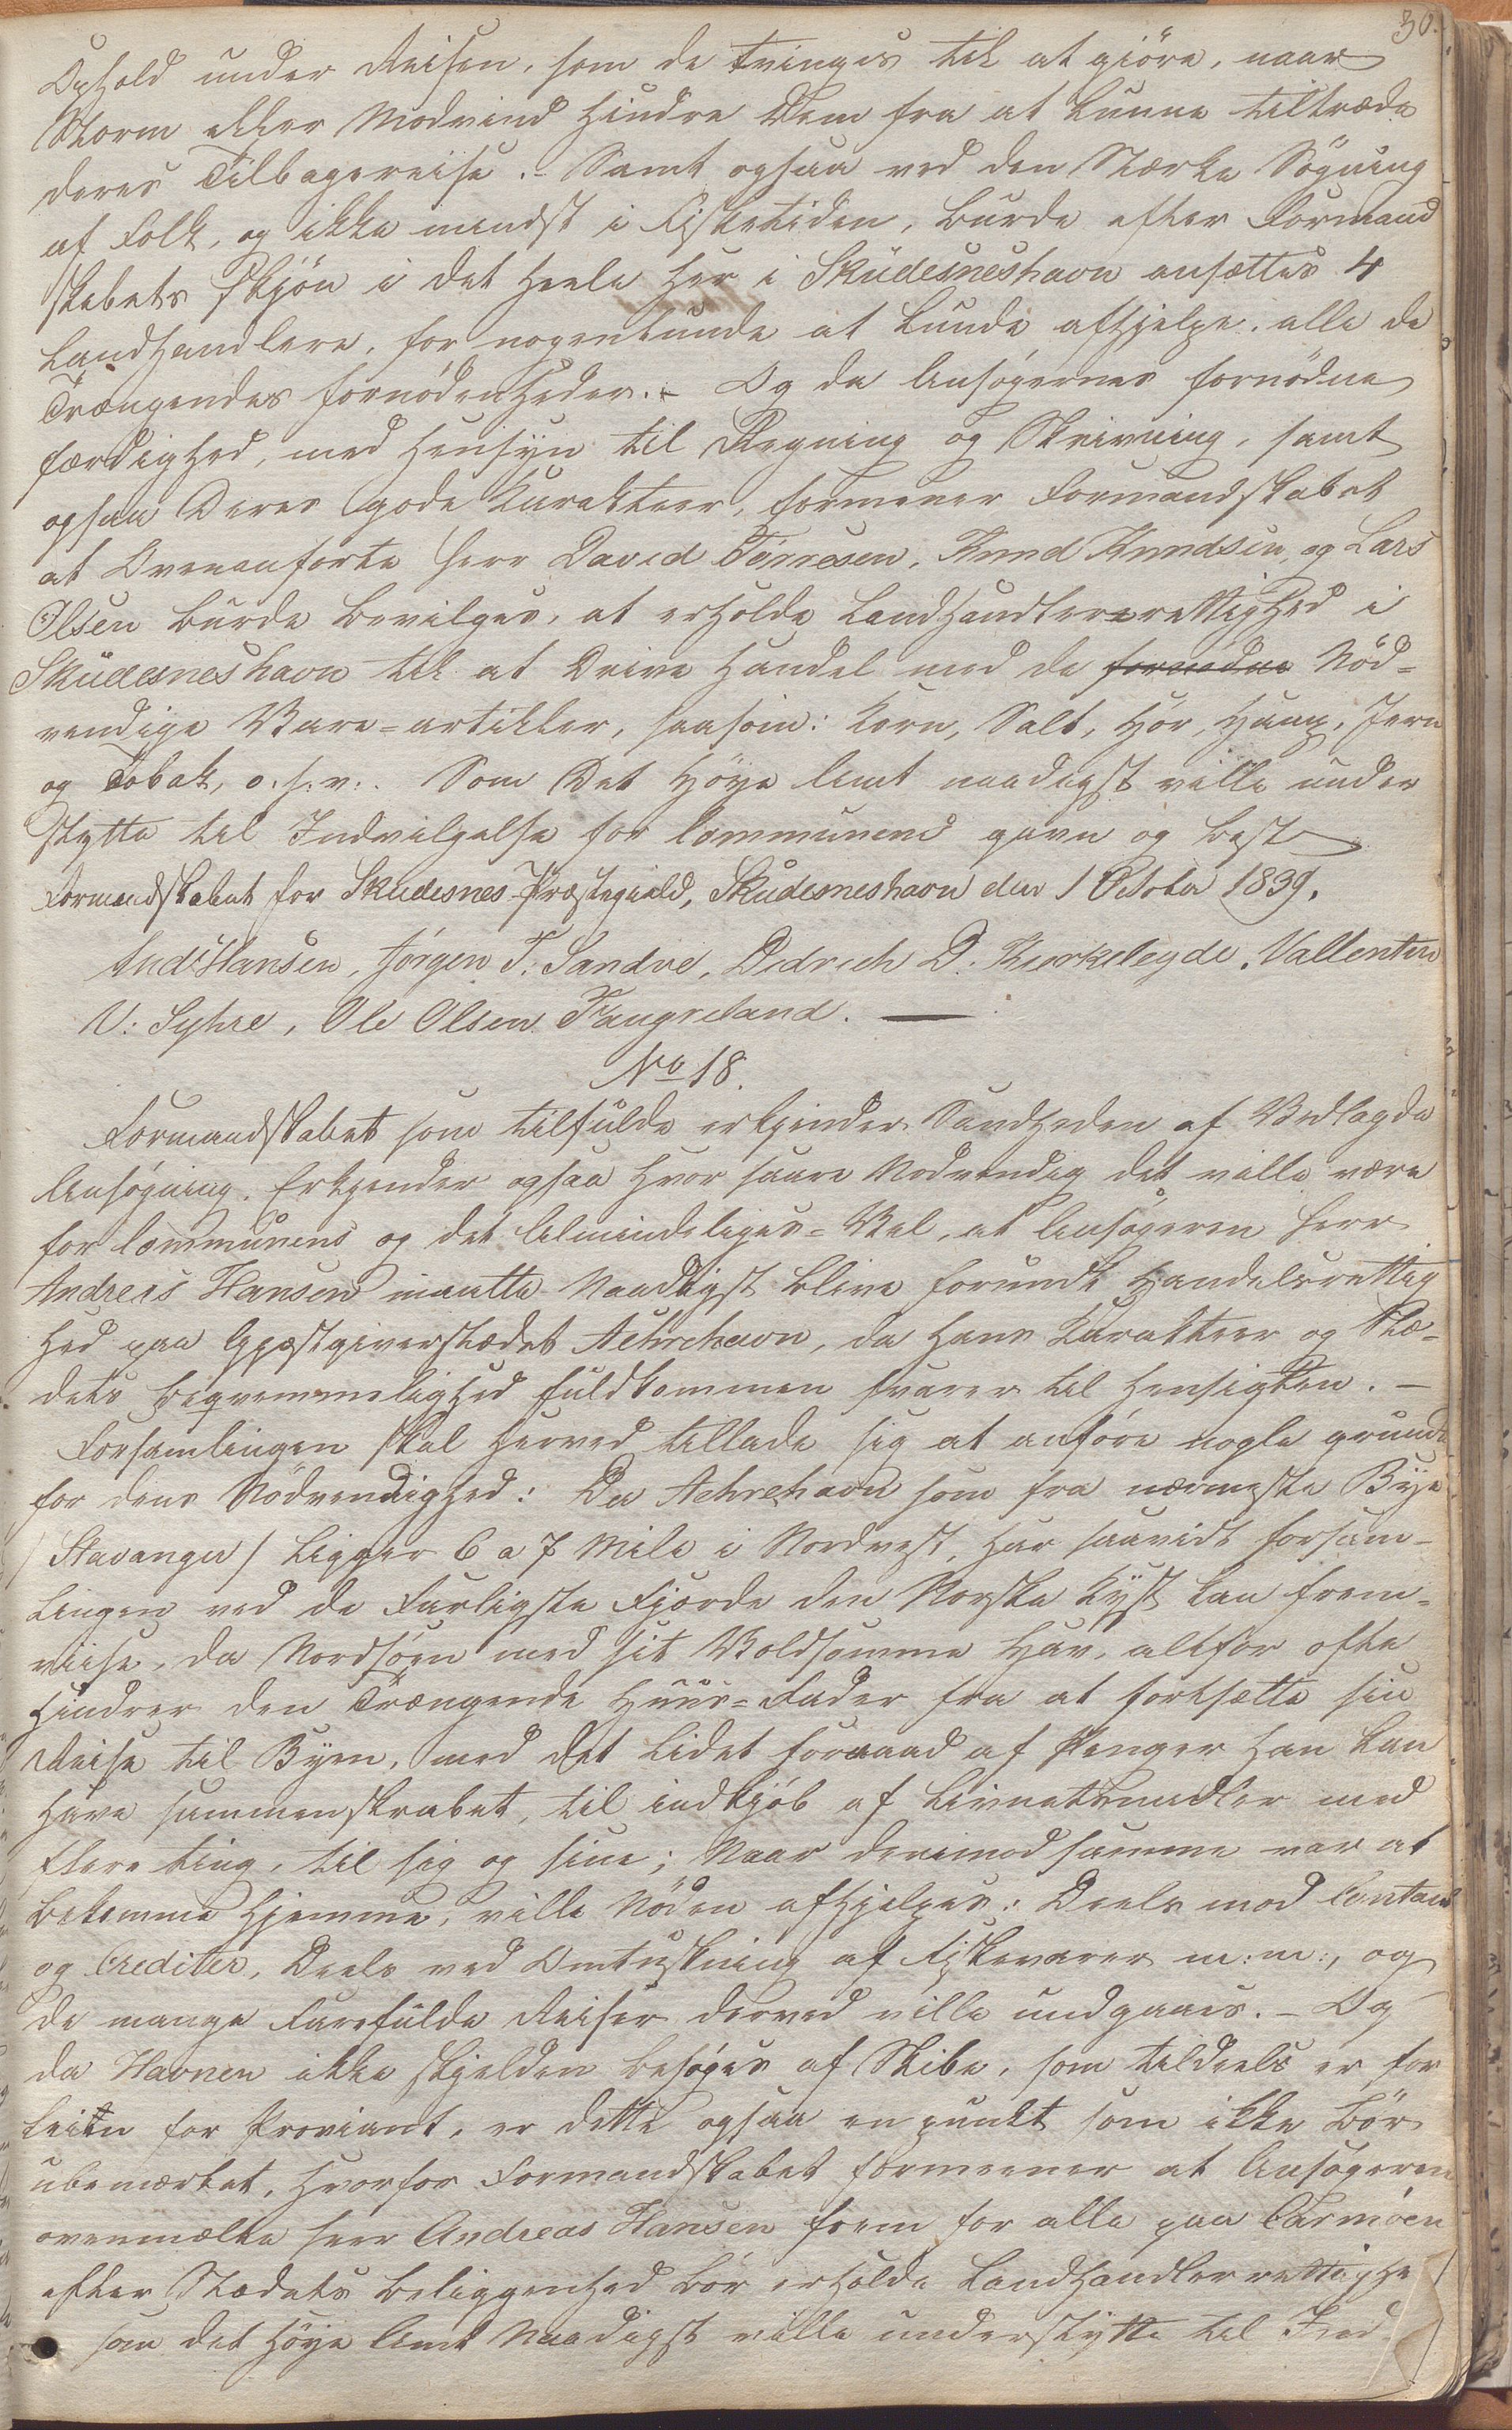 30.
Ophold under Reisen, som de tvinges til at giöre, naar
Storm eller Modvind hindre Dem fra at kunne tiltræde
deres Tilbagereise. - Samt ogsaa ved den stærke Sögning
af Folk, og ikke mindst i Fisketiden, burde efter Formand
skabets skjön i det heele her i Skudesneshavn ansættes 4
Landhandlere, for nogenlunde at kunde afhjelpe alle de
Trængendes fornödenheder. - Og da Ansøgernes fornödne
færdighed, med Hensyn til Regning og Skrivning, samt
ogsaa Deres gode Karakteer, formener Formandskabet
at Ovenanforte Herr David Tönresen, Knud Knudsen, og Lars
Olsen burde bevilges, at erholde Landhandlererettighed i
Skudesneshavn til at Drive Handel med de fornödne Nöd-
vendige Vare-artikler, saasom: Korn, Salt, Hör, Hamp, Jern
og Tobak, o.s.v. Som Det Höye Amt naadigst ville under
støtte til Indvilgelse for Communens gavn og best
Formandskabet for Skudesnes Præstegield, Skudesneshavn den 1 October 1839.
And: Hansen, Jörgen T. Sandve, Didrich D. Kirkeleyde, Vallentin
V: Syhre, Ole Olsen Faugreland. —
No 18.
Formandskabet som tilfulde erkjender Sandheden af Vedlagde
Ansøgning. Erkjender ogsaa hvor saare Nodvendig det ville være
for Communens og det Almindeliges-Vel, at Ansögeren Herr
Andreas Hansen maatte Naadigst blive forundt Handelsrettig
hed paa Gjæstgiverstædet Aehrehavn, da hans Karakteer og Stæ-
dets beqvemmelighed fuldkommen svarer til Hensigten. —
Forsamlingen skal herved tillade sig at anföre nogle grunde
for dens Nödvendighed: Da Aehrehavn som fra nærmeste Bye
/Stavanger/ ligger 6 a 7 Mile i Nordvest, har saavidt forsam-
lingen ved de Farligste Fjorde den Norske Kyst kan frem-
viise, da Nordsöen med sit Voldsomme Hav, altfor ofte
hindrer den Trængende Huus-Fader fra at fortsætte sin
Reise til Byen, med det lidet forraad af Penger han kan
have sammenskrabet, til indkjöb af Livnetsmidler med
flere ting, til sig og sine; Naar derimod samme var at
bekomme hjemme, ville Nöden afhjelpes: Deels mod Contant
og Crediter, Deels ved Omtuskning af Fiskevarer m:m:, og
de mange Farefulde Reiser derved ville undgaaes. - Og
da Havnen ikke skjelden besøges af Skibe, som tildeels er for
leiten for Proviant, er dette ogsaa en punkt som ikke bör
ubemærket, hvorfor Formandskabet formeener at Ansøgeren
ovenmælte Herr Andreas Hansen frem for alle paa Carmöen
efter Stædets Beliggenhed bör erholde Landhandlerrettighe
som det Höye Amt Naadigst ville understytte til Ind-